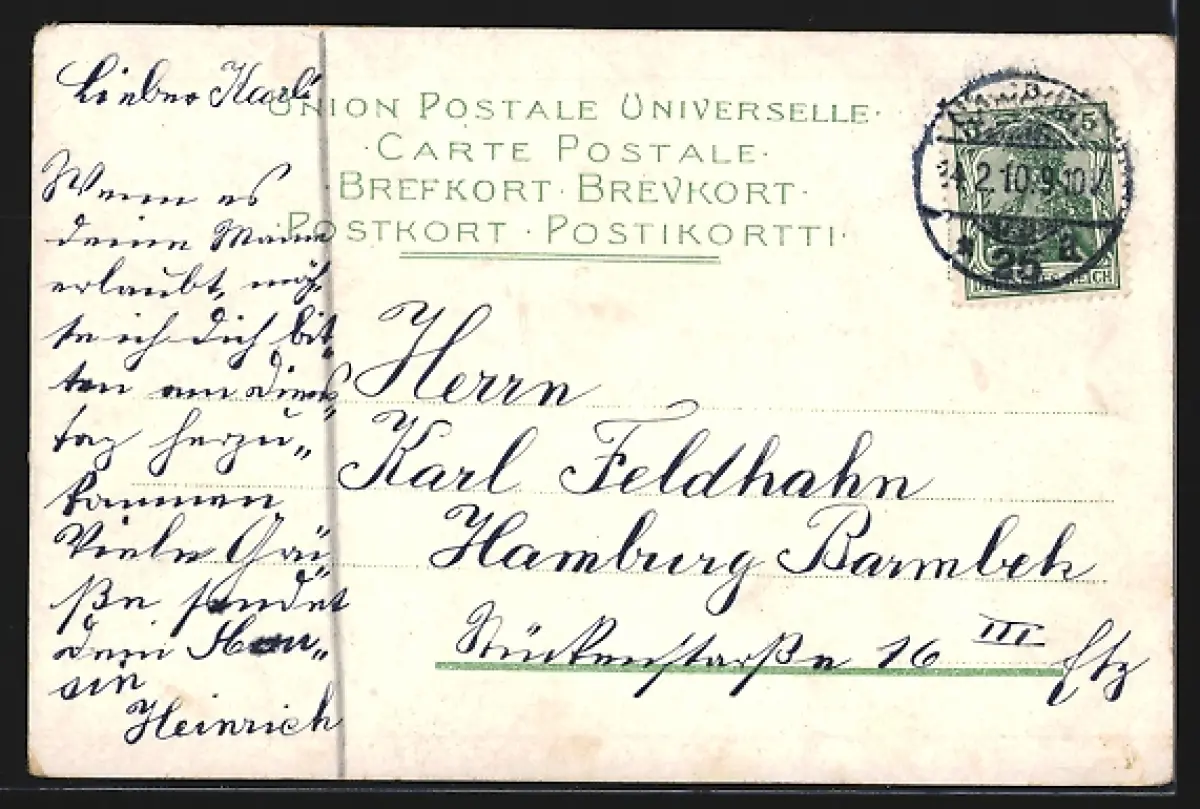 Lieber Karl!
Wenn es
deine Mama
erlaubt, möch-
te ich dich bit-
ten am Diens-
tag herzu-
kommen.
Viele Grü-
ße sendet
dein
Heinrich
UNION POSTALE UNIVERSELLE·
·CARTE POSTALE·
·BREFKORT·BREVKORT·
·POSTKORT·POSTIKORTTI·
5
2.10.9-10V.
* 25 a.
REICH
Herrn
Karl Feldhahn
Hamburg Barmbek
Stückenstraße 16 III Etg